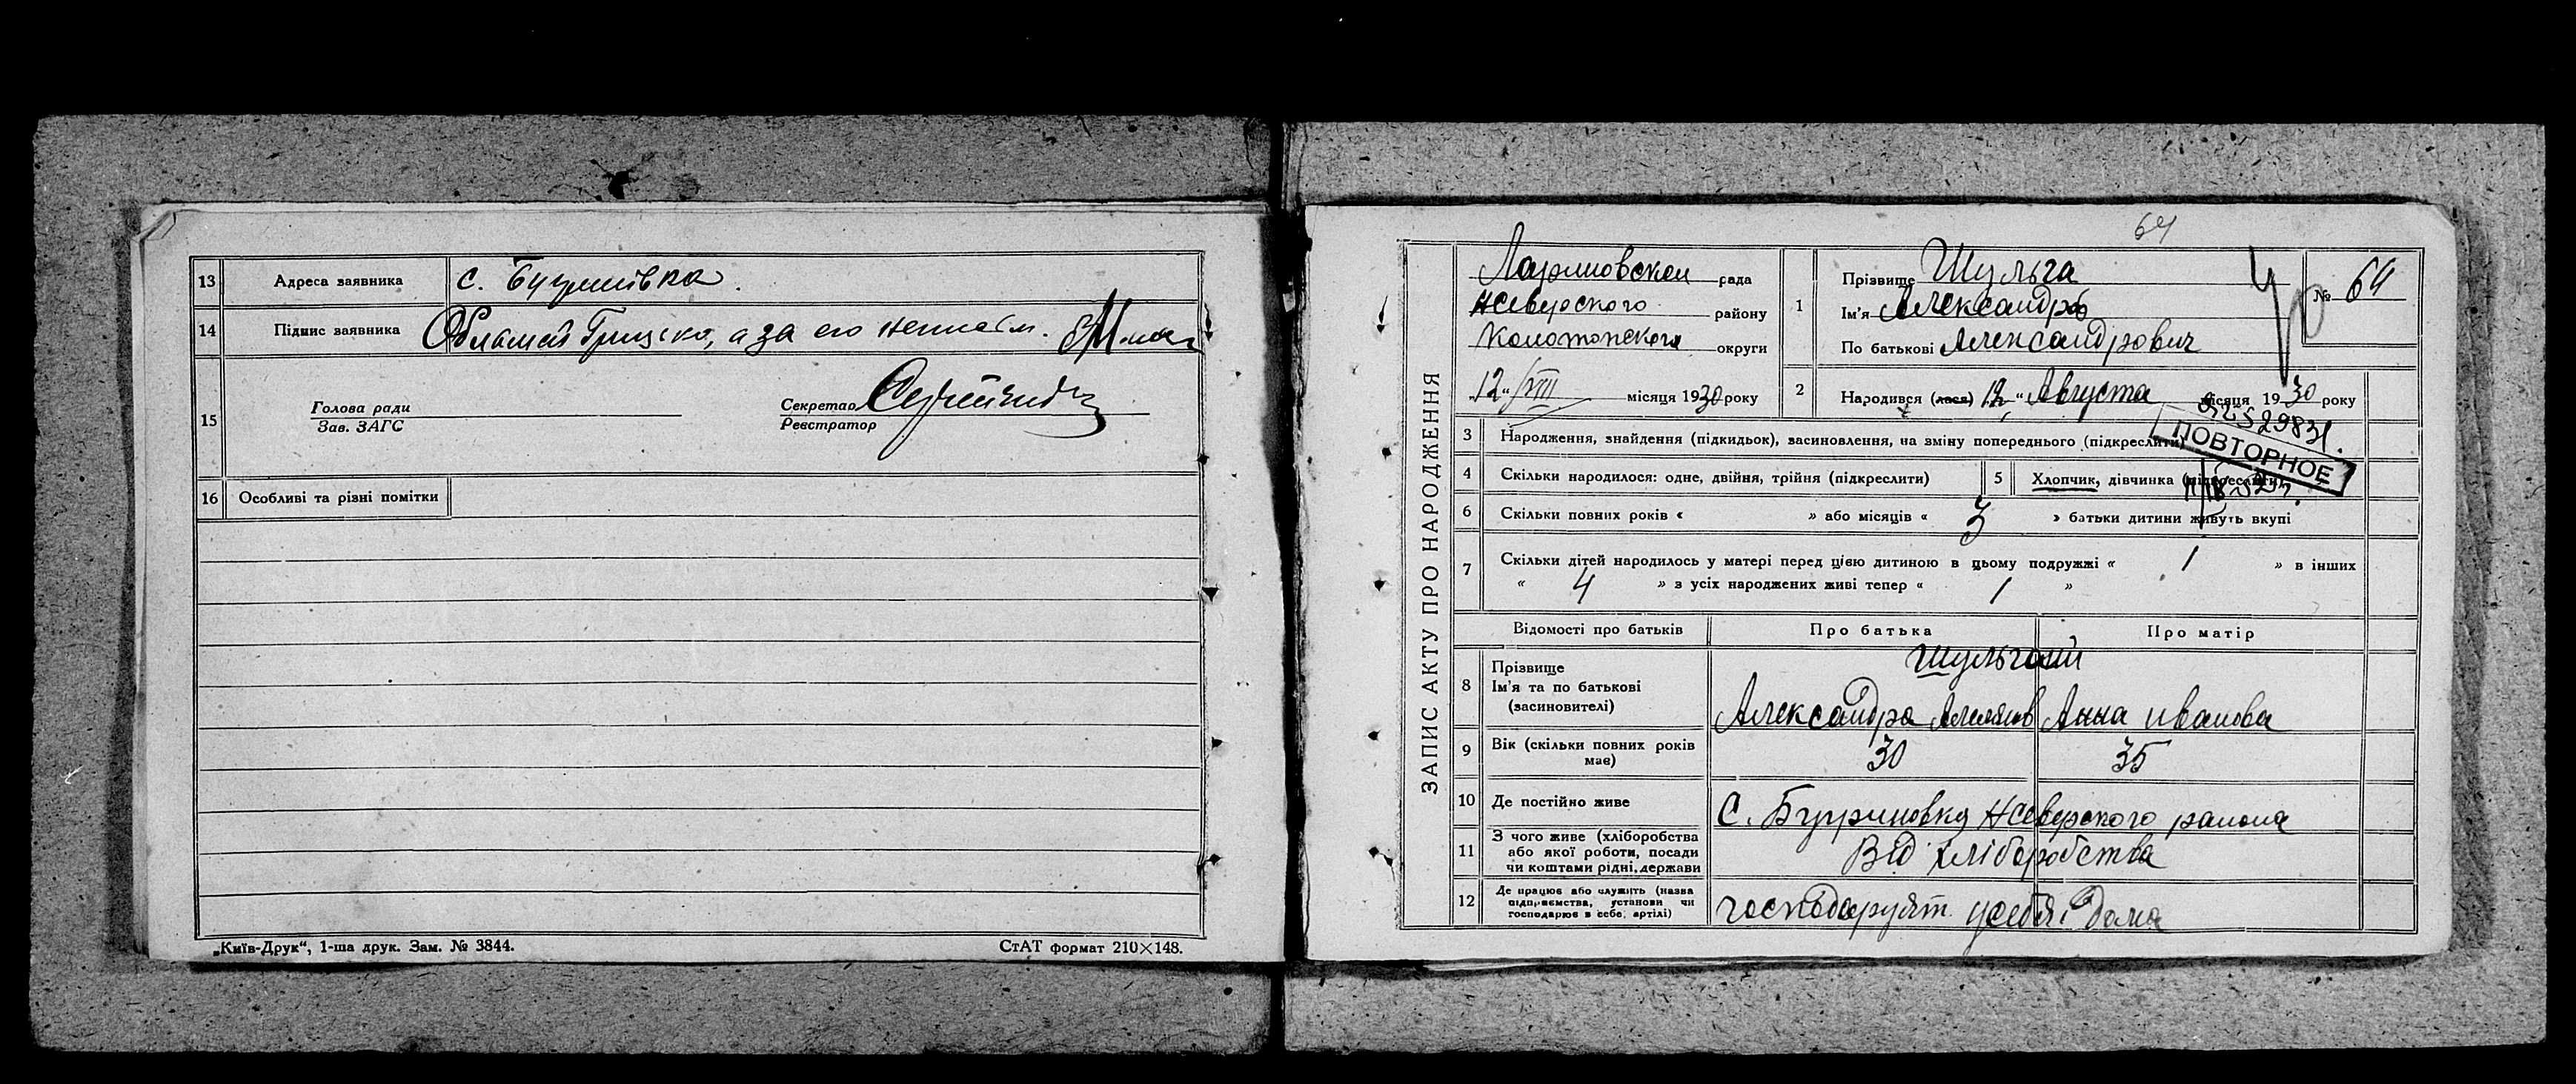 13 Адреса заявника с. Бууринівка.
14 Підпис заявника Грицько, а за его неписьм.
15 Голова ради Секретар
Зав. ЗАГС Реєстратор
16 Особливі та різні помітки
„Київ-Друк“, 1-ша друк. Зам. № 3844. СтАТ формат 210×148.
64
ЗАПИС АКТУ ПРО НАРОДЖЕННЯ
рада
Нсеверского району
Конотопского округи
12 “ VIII місяця 1930 року
1 Прізвище Шульга
№ 64
Ім'я Александр
По батькові Александрович
2 Народився (лася) 12 “ Августа місяця 1930 року
3 Народження, знайдення (підкидьок), засиновлення, на зміну попереднього (підкреслити)
ПОВТОРНОЕ
4 Скільки народилося: одне, двійня, трійня (підкреслити) 5 Хлопчик, дівчинка (підкреслити)
6 Скільки повних років « » або місяців « 3 » батьки дитини живуть вкупі
7 Скільки дітей народилось у матері перед цією дитиною в цьому подружжі « 1 » в інших
« 4 » з усіх народжених живі тепер « 1 »
Відомості про батьків Про батька Про матір
8 Прізвище
Ім'я та по батькові
(засиновителі)
Александра Анна Иванова
9 Вік (скільки повних років має) 30 35
10 Де постійно живе С. Бууриновка Нсеверского раиона
11 З чого живе (хліборобства
або якої роботи, посади
чи коштами рідні, держави
Від хліборобства
12 Де працює або служить (назва
підприємства, установи чи
господарює в себе, артілі)
господаруят у себя дома